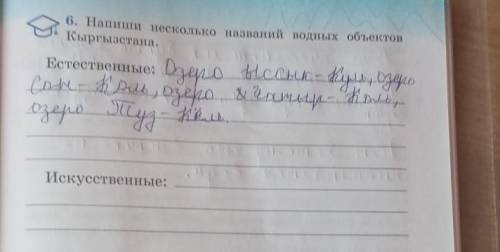 6. Напиши несколько названий водных объектов
Кыргызстана.
Естественные: Озеро Ыссык-Куль, озеро
Сон-Коль, озеро Чатыр-Коль,
озеро Туз-Кёль.
Искусственные: